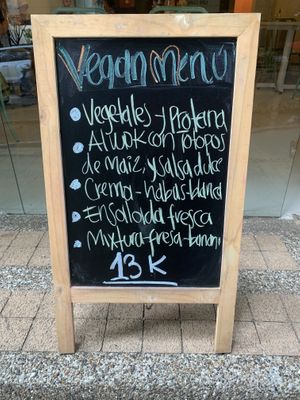 Vegan Menu
• Vegetales - Proteina
• Al WOK con Totopos
de maiz, y salsa dulce
• Crema - habas - blanca
• Ensalada fresca
• Mixtura - fresa - banano
13 K